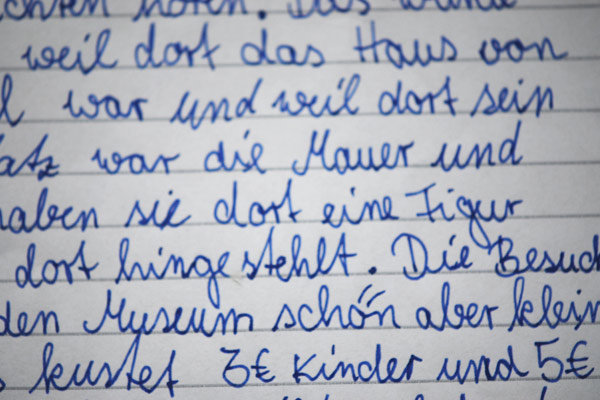 hören. Das wurde
weil dort das Haus von
l war und weil dort sein
atz war die Mauer und
haben sie dort eine Figur
dort hingestehlt. Die Besuch
den Myseum schön aber klein
kustet 3€ Kinder und 5€